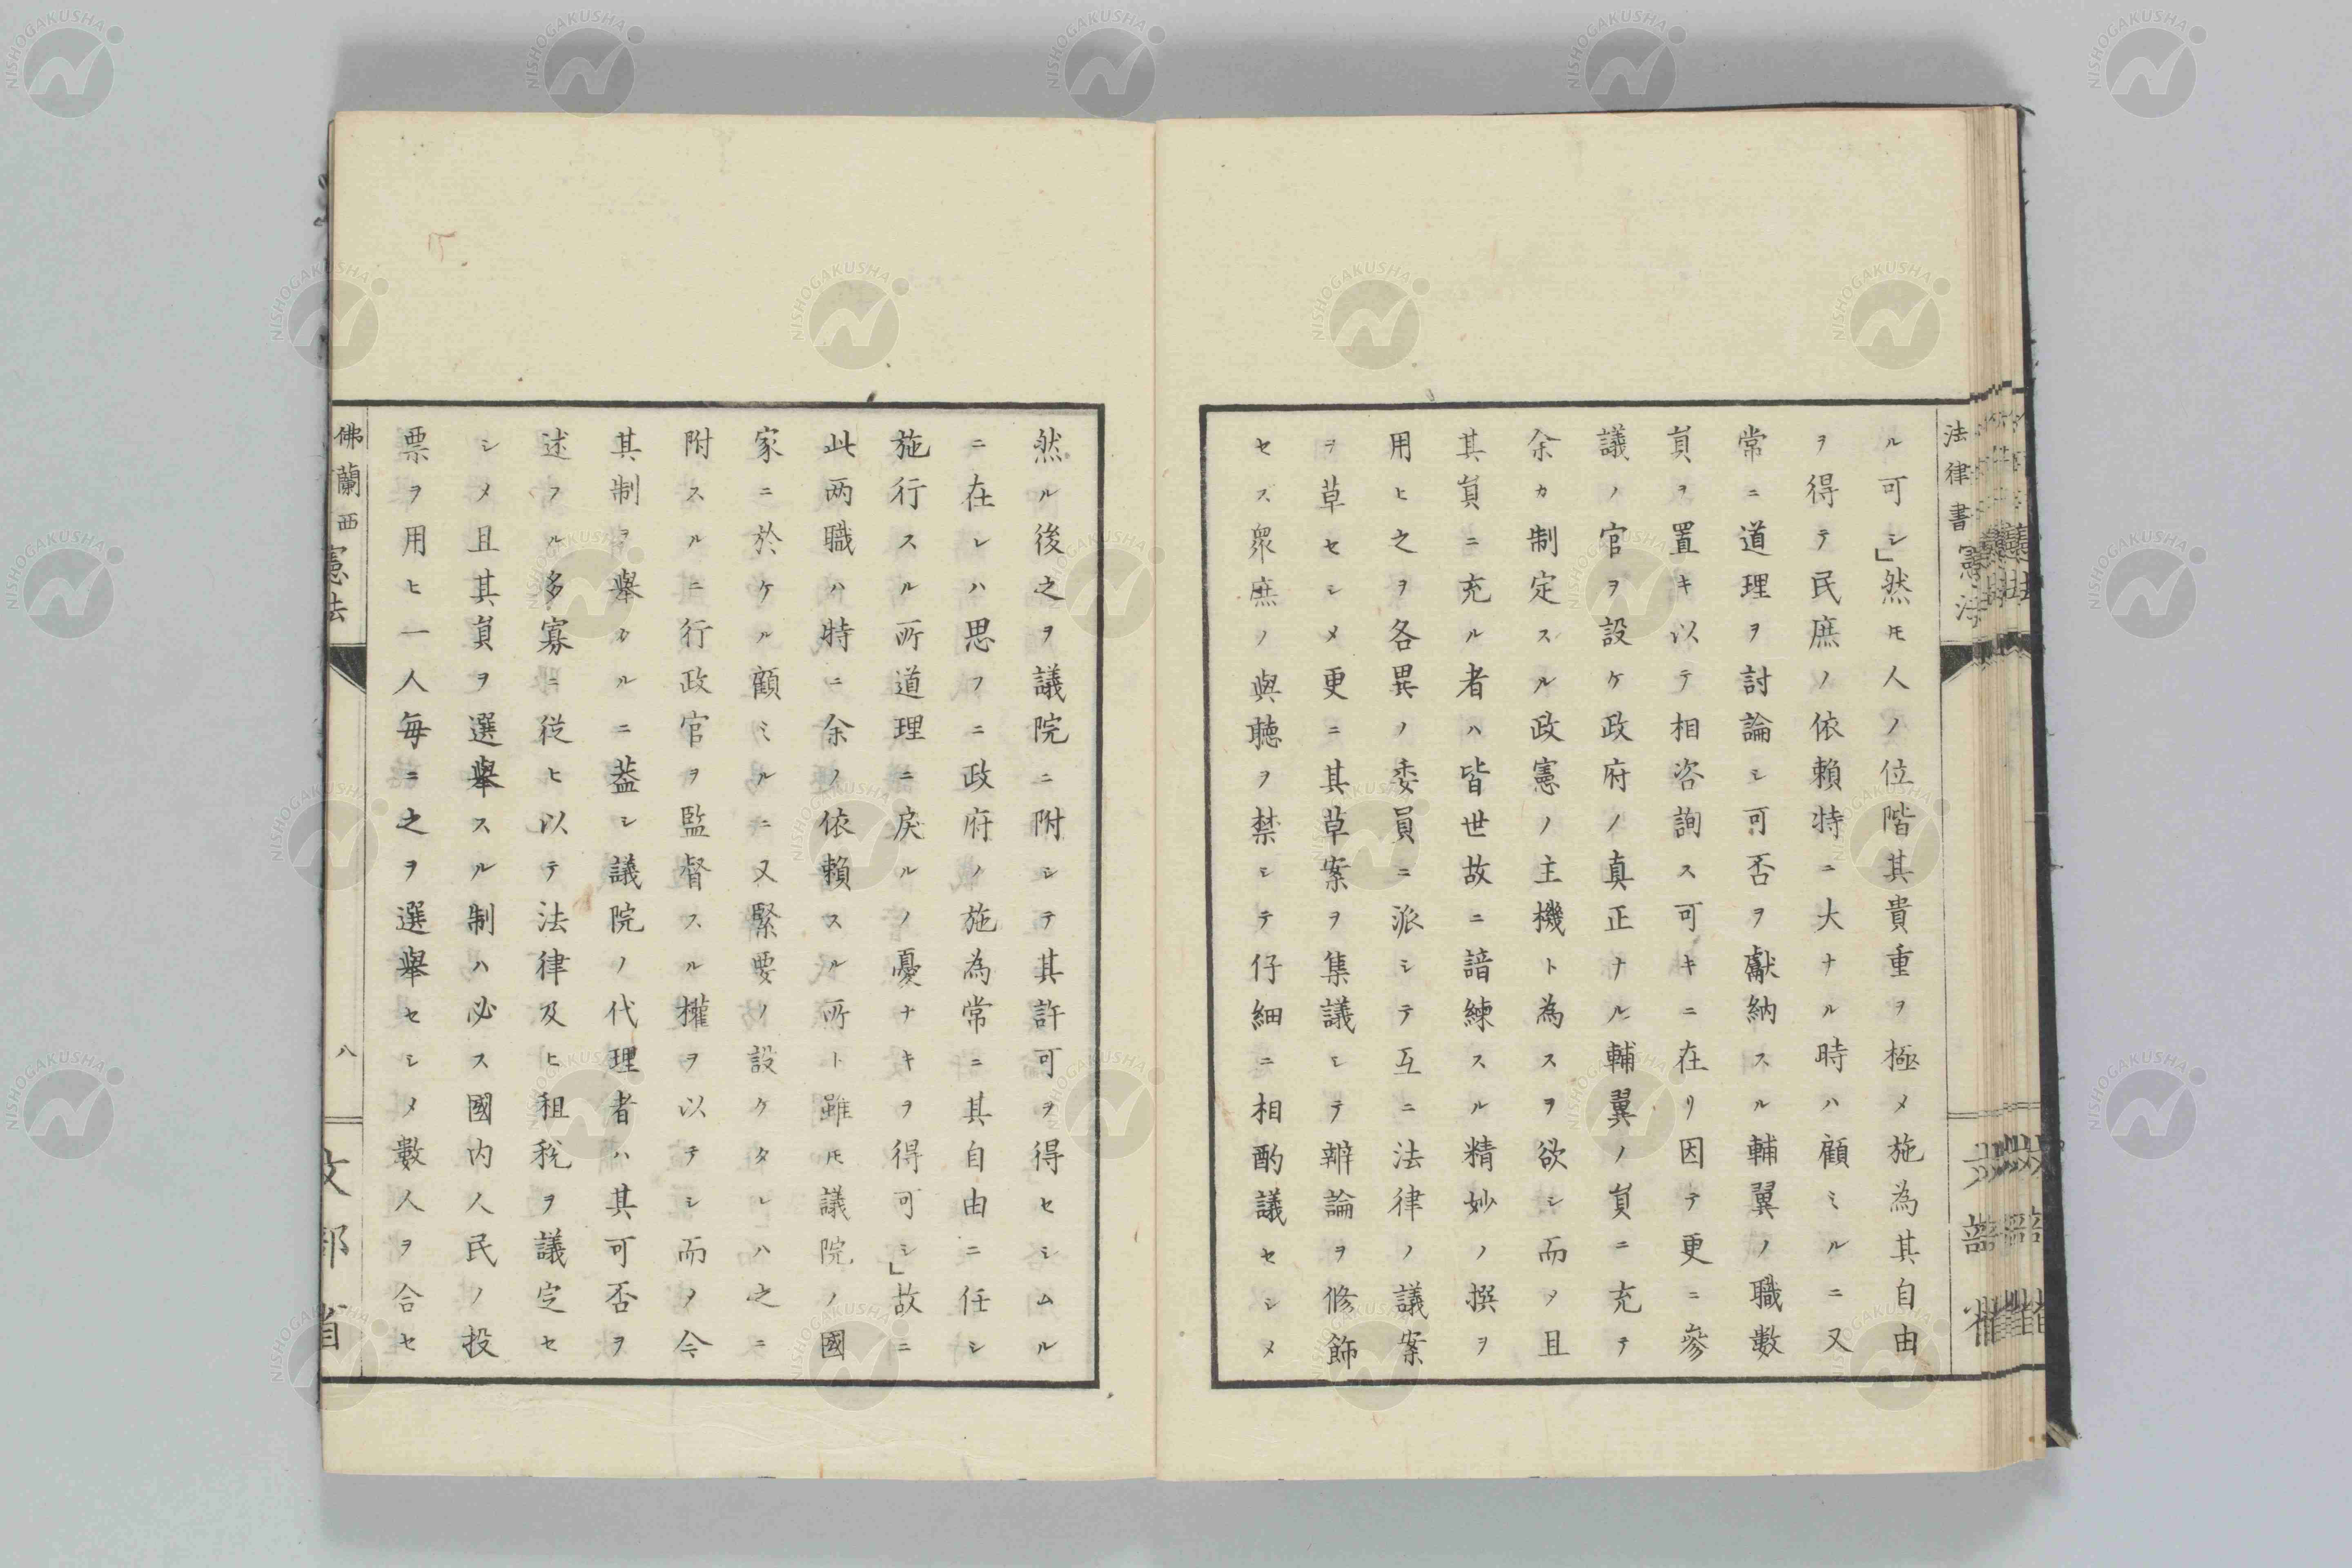 法律書 憲法
ル可シ」然𪜈人ノ位階其貴重ヲ極メ施為其自由
ヲ得テ民庶ノ依頼特ニ大ナル時ハ顧ミルニ又
常ニ道理ヲ討論シ可否ヲ獻納スル輔翼ノ職數
員ヲ置キ以テ相咨詢ス可キニ在リ因テ更ニ參
議ノ官ヲ設ケ政府ノ真正ナル輔翼ノ員ニ充テ
余カ制定スル政憲ノ主機ト為スヲ欲シ而〆且
其員ニ充ル者ハ皆世故ニ諳練スル精妙ノ撰ヲ
用ヒ之ヲ各異ノ委員ニ派シテ互ニ法律ノ議案
ヲ草セシメ更ニ其草案ヲ集議シテ辨論ヲ修飾
セス衆庶ノ與聽ヲ禁シテ仔細ニ相酌議セシメ
然ル後之ヲ議院ニ附シテ其許可ヲ得セシムル
ニ在レハ思フニ政府ノ施為常ニ其自由ニ任シ
施行スル所道理ニ戾ルノ憂ナキヲ得可シ」故ニ
此两職ハ特ニ余ノ依賴スル所ト雖𪜈議院ノ國
家ニ於ケル顧ミルニ又緊要ノ設ケタレハ之ニ
附スルニ行政官ヲ監督スル權ヲ以テシ而〆今
其制ヲ舉クルニ葢シ議院ノ代理者ハ其可否ヲ
述フル多寡ニ從ヒ以テ法律及ヒ租税ヲ議定セ
シメ且其員ヲ選舉スル制ハ必ス國内人民ノ投
票ヲ用ヒ一人毎ニ之ヲ選舉セシメ數人ヲ合セ
佛蘭西憲法
八
文部省
NISHOGAKUSHA